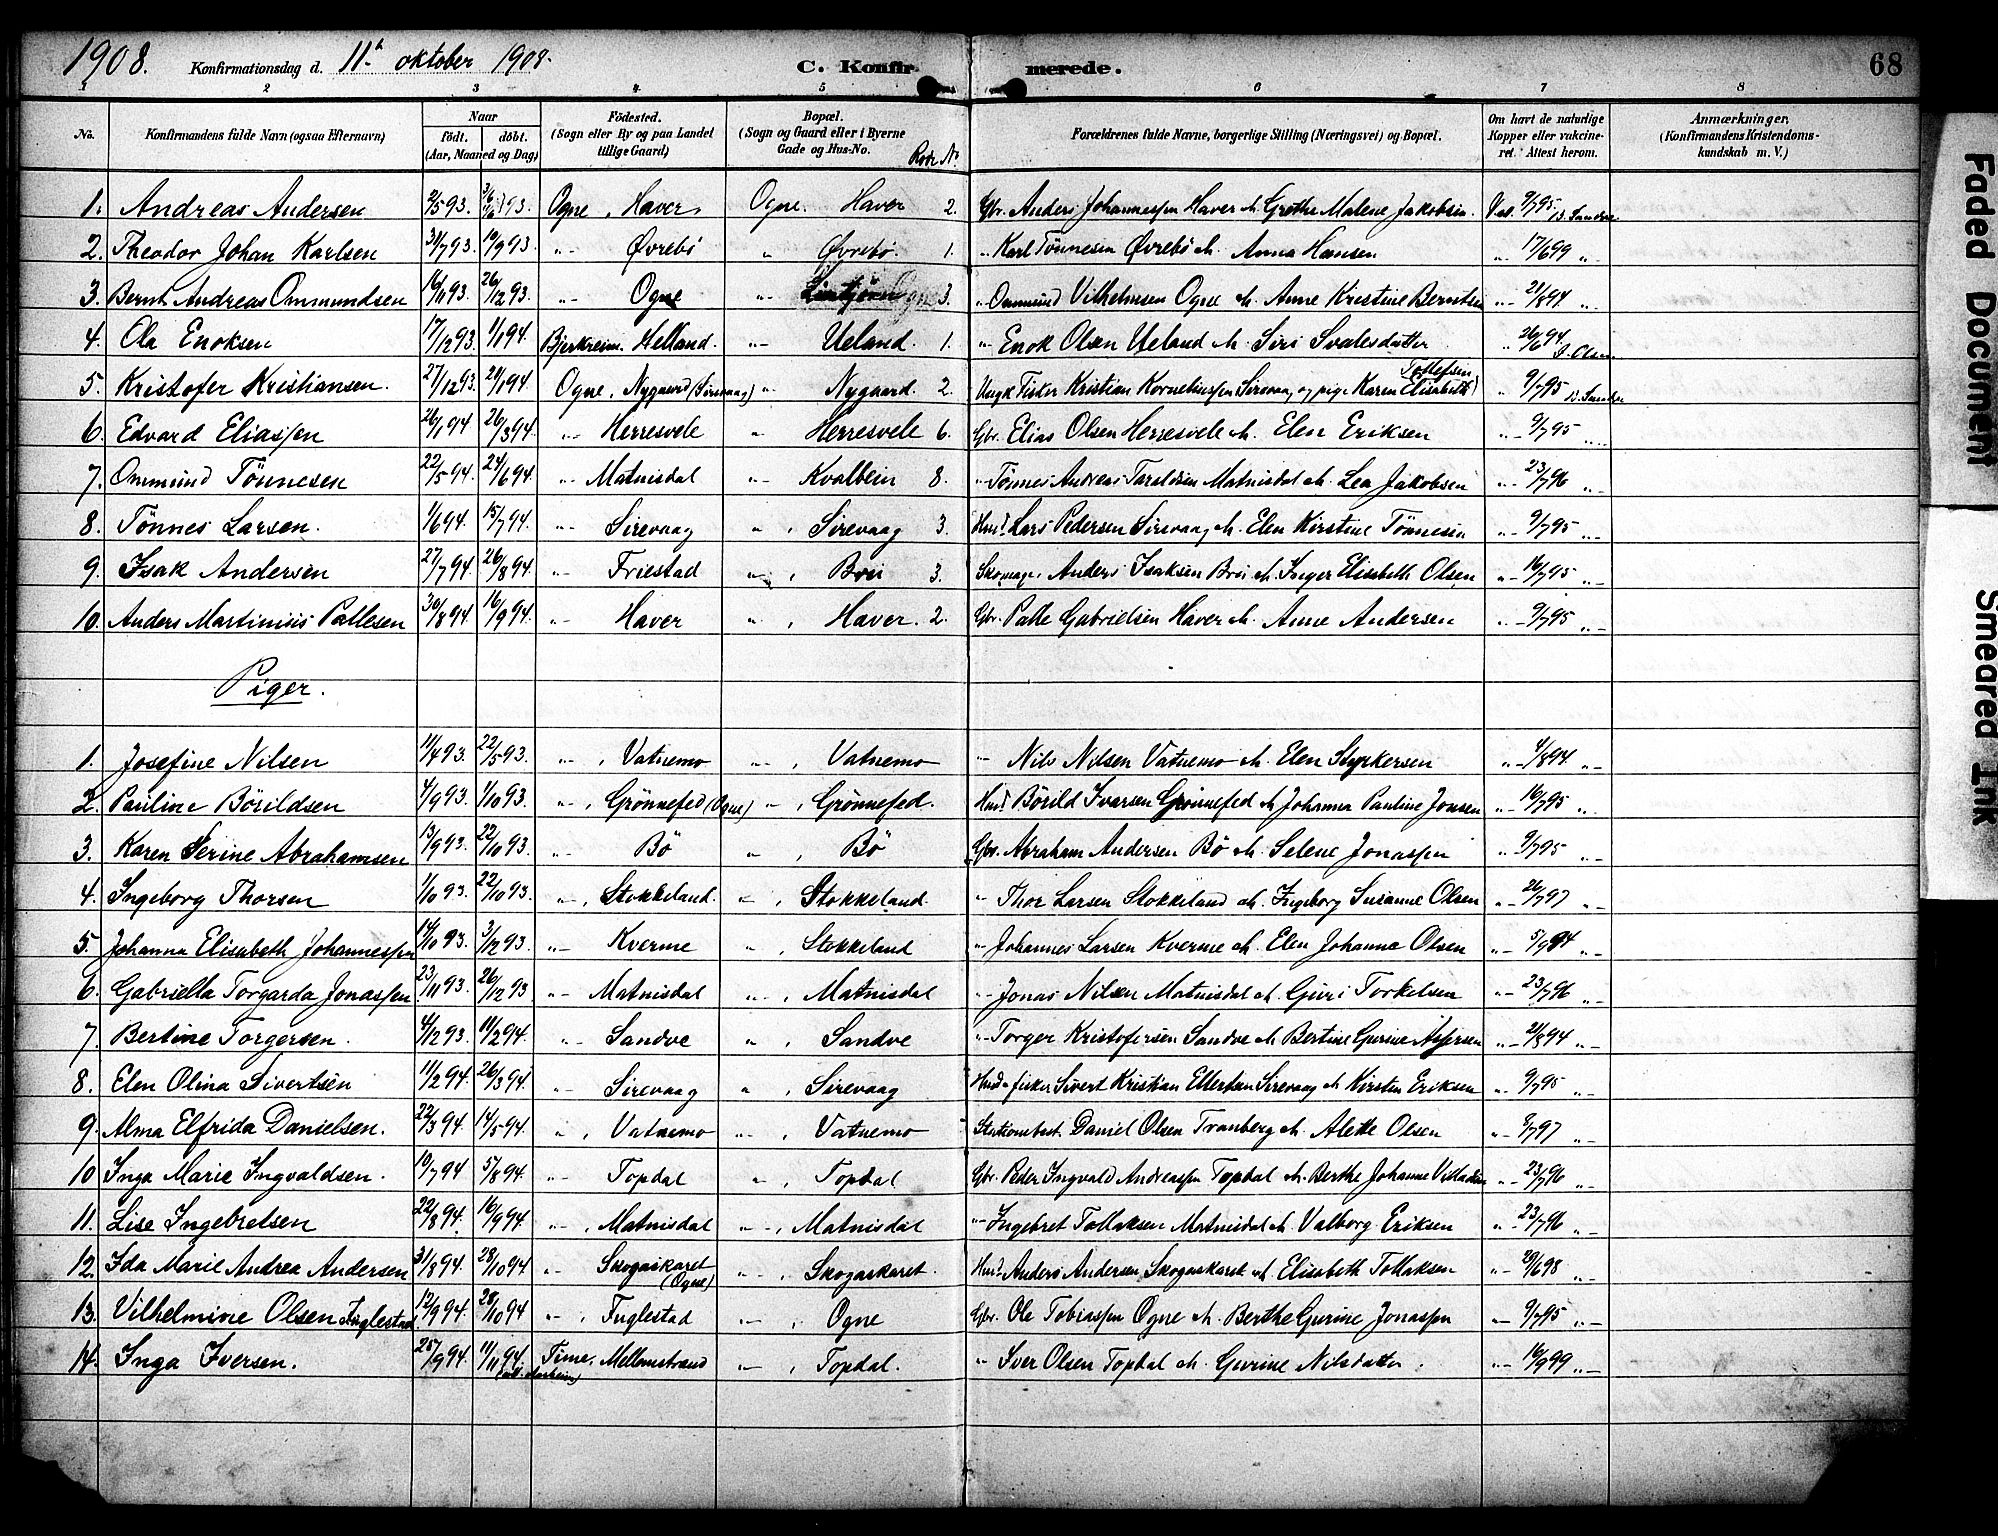 1908. Konfirmationsdag d. 11te oktober 1908. C. Konfirmerede. 68
1 2 3 4 5 6 7 8
No. Konfirmandens fulde Navn (ogsaa Efternavn) Naar født. døbt. (Aar, Maaned og Dag) Fødested. (Sogn eller By og paa Landet tillige Gaard) Bopæl. (Sogn og Gaard eller i Byerne Gade og Hus-No. Rode No. Forældrenes fulde Navne, borgerlige Stilling (Næringsvei) og Bopæl. Om havt de naturlige Kopper eller vaccineret. Attest herom. Anmærkninger. (Konfirmandens Kristendomskundskab m. V.)
1. Andreas Andersen 2/5 93. 93. Ogne, Haver Ogne. Haver 2. Gbr. Anders Johannessen Haver og h. Grethe Malene Jakobsen. Vac. 9/7 95 B. Sandve
2. Theodor Johan Karlsen 31/7 93. 10/9 93. "- Øvrebö " Øvrebö. 1. "- Karl Tönnesen Øvrebö og h. Anna Hansen " 17/6 99 "-
3. Bernt Andreas Ommundsen 16/11 93. 26/12 93. "- Ogne "- Ogne 3. "- Ommund Vilhelmsen Ogne og h. Anne Kristine Berntsen "- 21/8 94 "-
4. Ola Enoksen 17/12 93. 1/1 94. Bjerkreim. Helland. "- Ueland. 1. "- Enok Olsen Ueland og h. Siri Svalesdatter " 26/6 94 O. Olsen
5. Kristofer Kristiansen. 27/12 93. 21/1 94. Ogne, Nygaard (Sirevaag) "- Nygaard. 2. Ungk. Fisker Kristian Korneliussen Sirevaag og pige Karen Elisabeth Tollefsen " 9/7 95 B. Sandve
6. Edvard Eliassen 26/1 94. 26/3 94. "- Herresvele " Herresvele 6. Gbr. Elias Olsen Herresvele og h. Elen Eriksen "- 9/7 95 "-
7. Ommund Tönnesen 22/5 94. 24/6 94. "- Matnisdal " Kvalbein 8. "- Tönnes Andreas Taraldsen Matnisdal og h. Lea Jakobsen "- 23/7 96 "-
8. Tönnes Larsen. 1/6 94. 15/7 94. "- Sirevaag ", Sirevaag 3. Husm. Lars Pedersen Sirevaag og h. Elen Kirstine Tönnesen "- 9/7 95 "-
9. Isak Andersen 27/7 94. 26/8 94. "- Friestad ", Brei 3. Skomager Anders Isaksen Brei og h. Inger Elisabeth Olsen "- 16/7 95 "-
10. Anders Martinius Pallesen 30/8 94. 16/9 94. "- Haver ", Haver. 2. Gbr. Palle Gabrielsen Haver og h. Anne Andersen "- 9/7 95 "-
Piger.
1. Josefine Nilsen 11/4 93. 22/5 93. "-, Vatnemo "-, Vatnemo "- Nils Nilsen Vatnemo og h. Elen Styrkersen "- 4/8 94 "-
2. Pauline Börildsen 4/9 93. 1/10 93. "-, Grönnefed (Ogne) "-, Grönnefed. Husm. Börild Ivarsen Grönnefed og h. Johanna Pauline Jonsen "- 16/7 95 "-
3. Karen Serine Abrahamsen 13/9 93. 22/10 93. "- Bö ", Bö Gbr. Abraham Andersen Bö og h. Selene Jonassen " 9/7 95 "-
4. Ingeborg Thorsen 1/10 93. 22/10 93. "-, Stokkeland. ", Stokkeland. "- Thor Larsen Stokkeland og h. Ingeborg Susanne Olsen "- 26/7 97 "-
5. Johanna Elisabeth Johannessen 14/10 93. 3/12 93. "- Kverme ", Stokkeland "- Johannes Larsen Kverme og h. Elen Johanne Olsen "- 5/9 94 "-
6. Gabriella Torgarda Jonassen 23/11 93. 26/12 93 "- Matnisdal "-, Matnisdal "- Jonas Nilsen Matnisdal og h. Guri Torkelsen "- 23/7 96 "-
7. Bertine Torgersen. 4/12 93. 11/2 94. "- Sandve ", Sandve "- Torger Kristofersen Sandve og h. Bertine Gurine "- 21/8 94 "-
8. Elen Olina Sivertsen 11/2 94. 26/3 94. "- Sirevaag ", Sirevaag Husm. fisker Sivert Kristian Ellertsen Sirevaag og h. Kirsten Eriksen "- 9/7 95 "-
9. Alma Elfrida Danielsen. 22/3 94. 14/5 94. ", Vatnemo "-, Vatnemo Stationsbest. Daniel Olsen Tranberg og h. Alette Olsen "- 9/7 97 "-
10 Inga Marie Ingvaldsen. 10/7 94 5/8 94. "- Topdal ", Topdal Gbr. Peder Ingvald Andreassen Topdal og h. Berthe Johanne Villadsen "- 23/7 96 "-
11. Lise Ingebretsen 22/8 94. 16/9 94. "-, Matnisdal "-, Matnisdal "- Ingebret Tollaksen Matnisdal og h. Valborg Eriksen " 23/7 96 "-
12. Ida Marie Andrea Andersen 31/8 94. 28/10 94. "- Skogaskaret (Ogne) "-, Skogaskaret. Husm. Anders Andersen Skogaskaret og h. Elisabeth Tollaksen "- 29/6 98 "-
13. Vilhelmine Olsen Fuglestad 12/9 94. 28/10 94 "-, Fuglestad "-, Ogne Gbr. Ole Tobiassen Ogne og h. Berthe Gurine Jonassen "- 9/7 95 "-
14. Inga Iversen. 25/9 94. 11/11 94. Time, Mellomstrand "-, Topdal. "- Iver Olsen Topdal og h. Gurine Nilsdatter. "- 16/9 99 "-
Faded Document
Smeared Ink